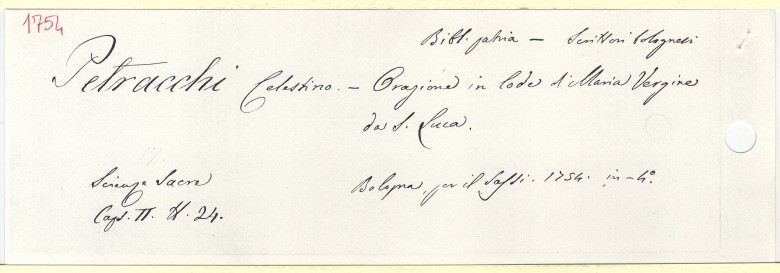 1754
Bibl. patria — Scrittori bolognesi
Petracchi Celestino. — Orazione in lode di Maria Vergine
da S. Luca.
Scienze Sacre
Bologna, per il Sassi. 1754. in-4°.
Caps. II. N. 24.